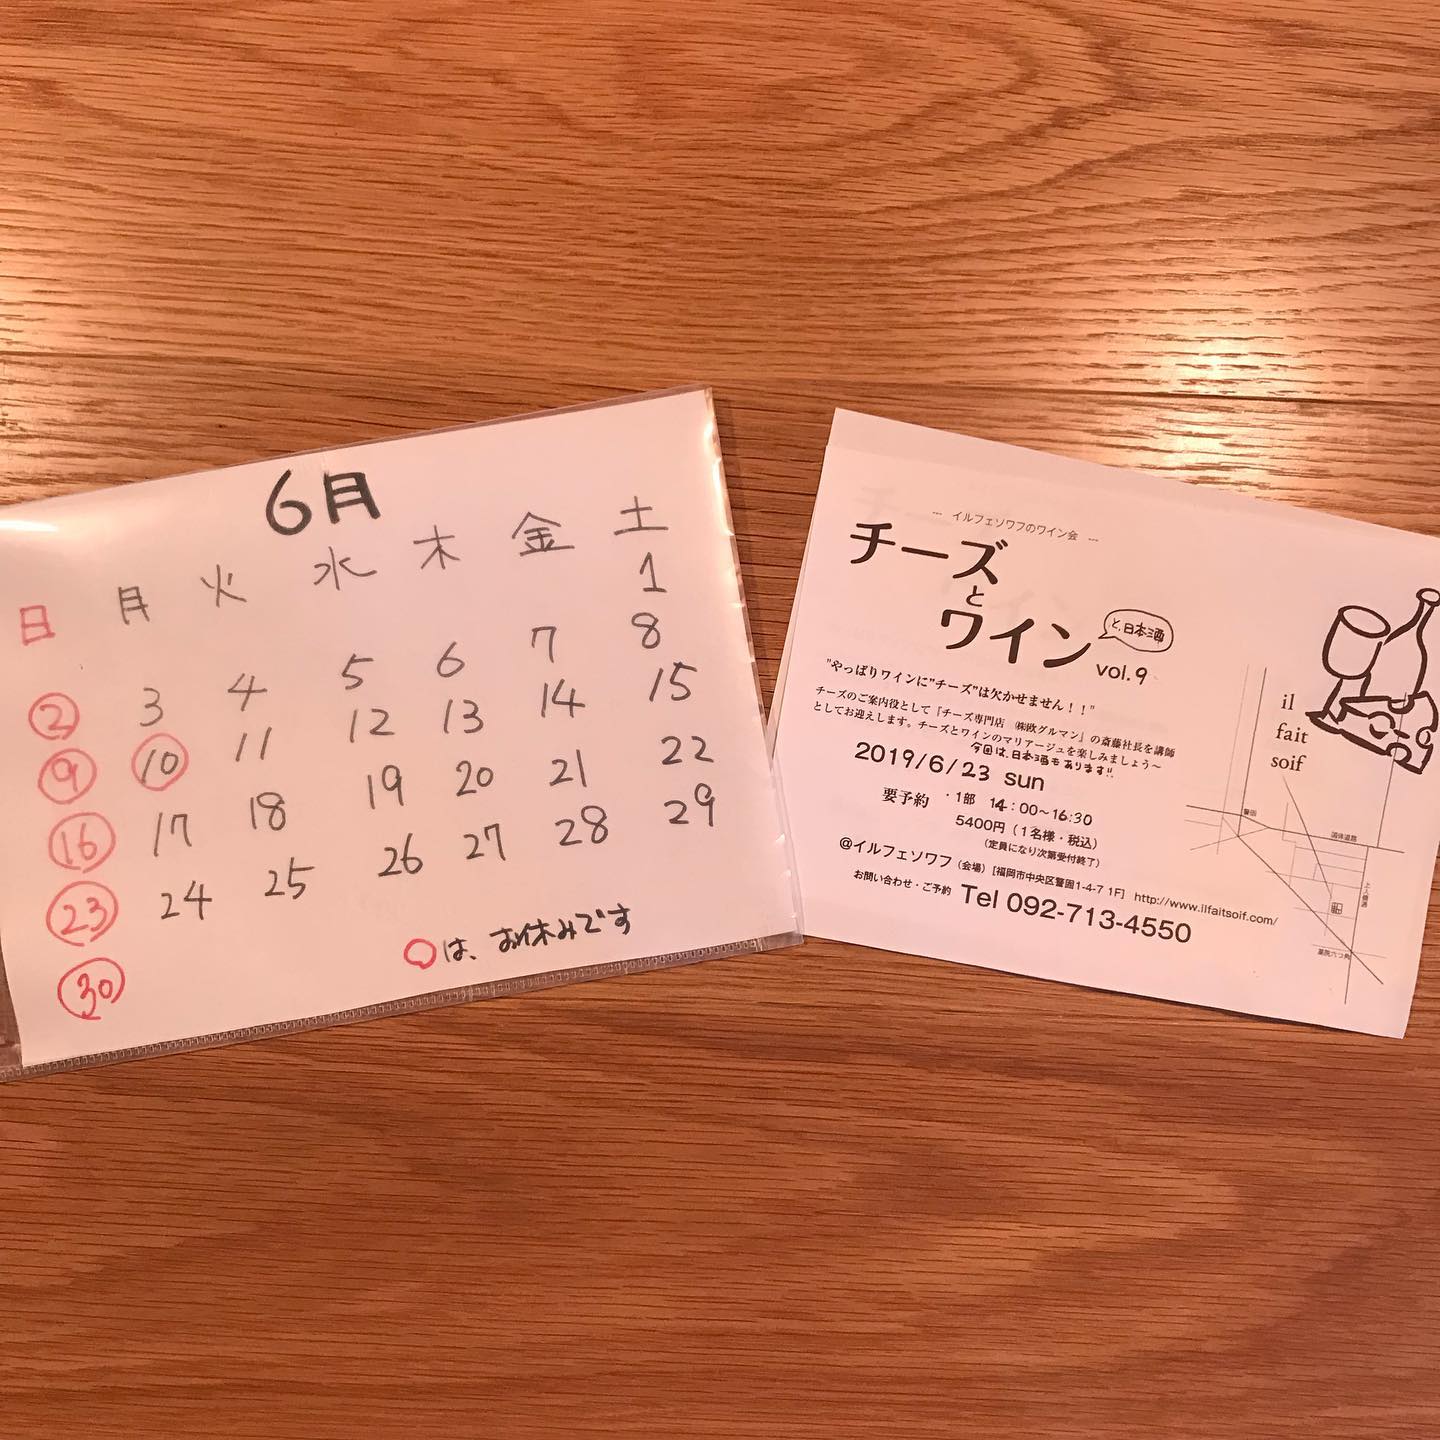 6月
日 月 火 水 木 金 土
1
2 3 4 5 6 7 8
9 10 11 12 13 14 15
16 17 18 19 20 21 22
23 24 25 26 27 28 29
30
○は、お休みです
--- イルフェソワフのワイン会 ---
チーズ
と
ワイン
と、日本酒
vol.9
"やっぱりワインに"チーズ"は欠かせません！！"
チーズのご案内役として『チーズ専門店 ㈱欧グルマン』の斎藤社長を講師
としてお迎えします。チーズとワインのマリアージュを楽しみましょう〜
今回は、日本酒もあります!!
2019/6/23 sun
要予約 ・1部 14：00〜16:30
5400円（1名様・税込）
（定員になり次第受付終了）
@イルフェソワフ（会場）［福岡市中央区警固1-4-7 1F］ http://www.ilfaitsoif.com/
お問い合わせ・ご予約 Tel 092-713-4550
il
fait
soif
警固
国体道路
上人橋通
薬院六つ角